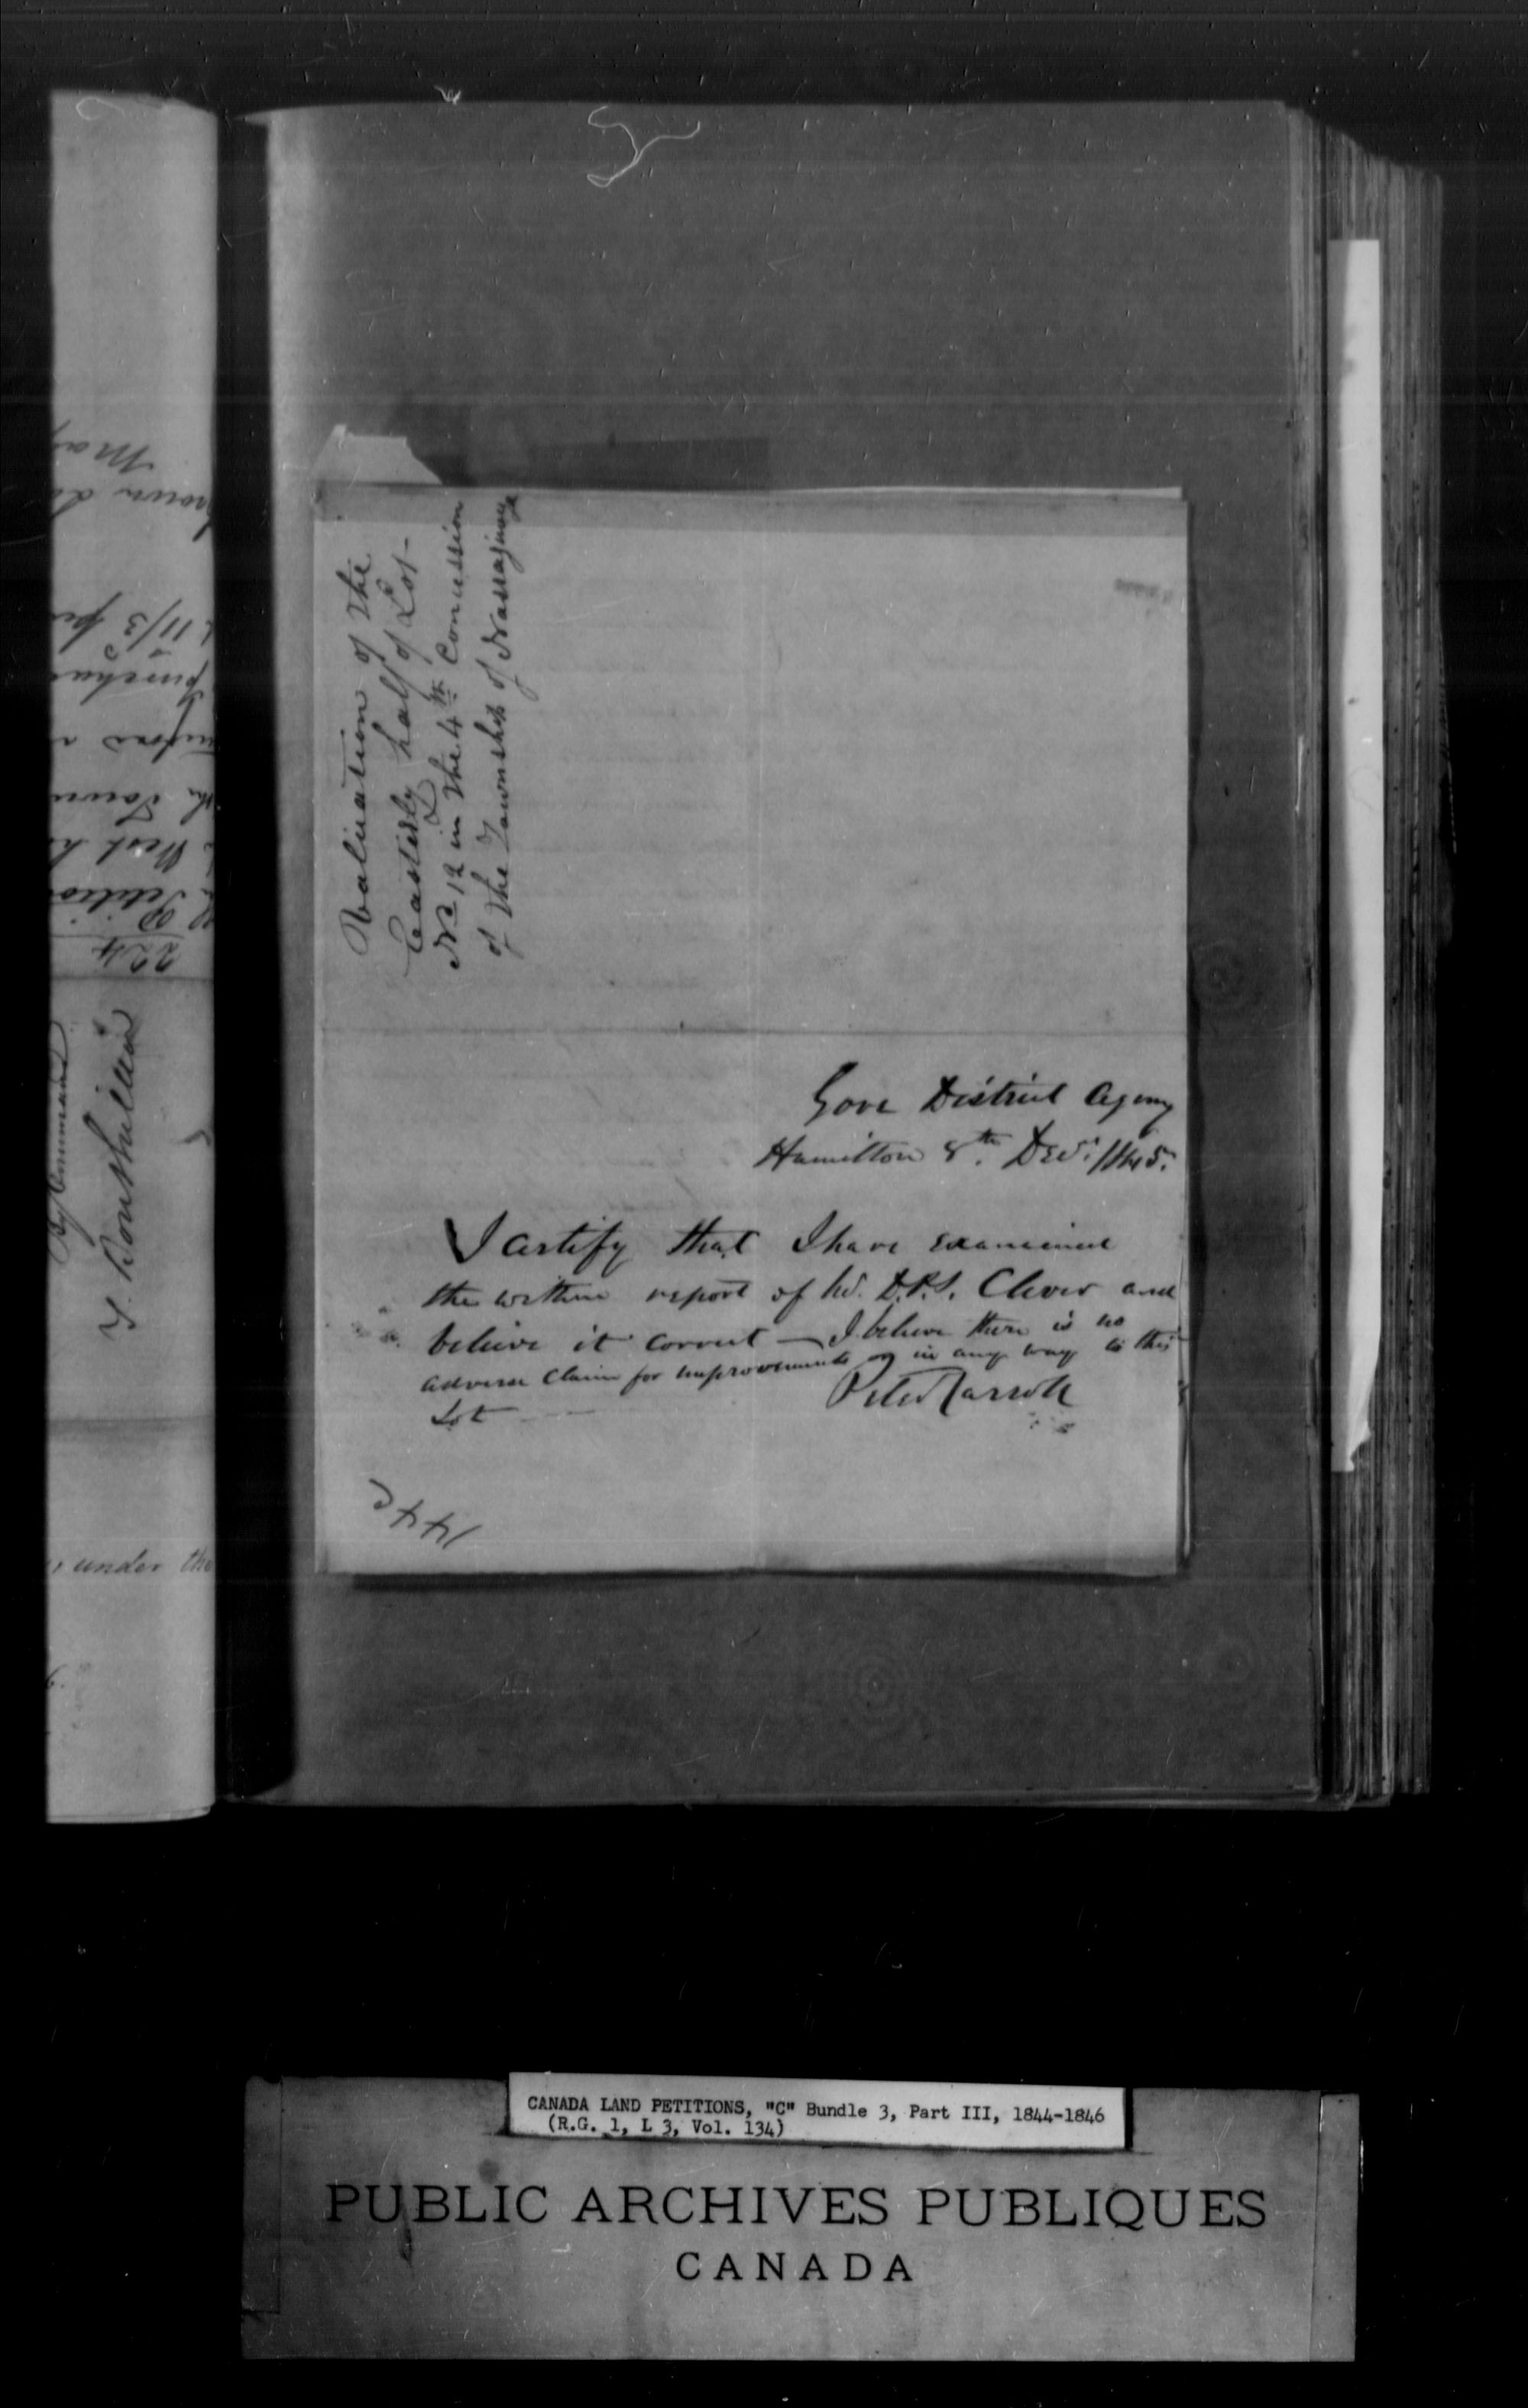 Valuation of the
Easterly half of Lot-
No 12 in the 4th Concession
of the Township of Nassagiweya
Gore District Agency
Hamilton 8th Decr. 1845.
I certify that I have examined
the within report of D.P.S. and
believe it correct — I believe there is no
adverse claim for improvements or in any way to this
Lot
Peter Carroll
By Command
under the
224
Petition
West h
Town
purchas
11/3 pe
CANADA LAND PETITIONS, "C" Bundle 3, Part III, 1844-1846
(R.G. 1, L 3, Vol. 134)
PUBLIC ARCHIVES PUBLIQUES
CANADA